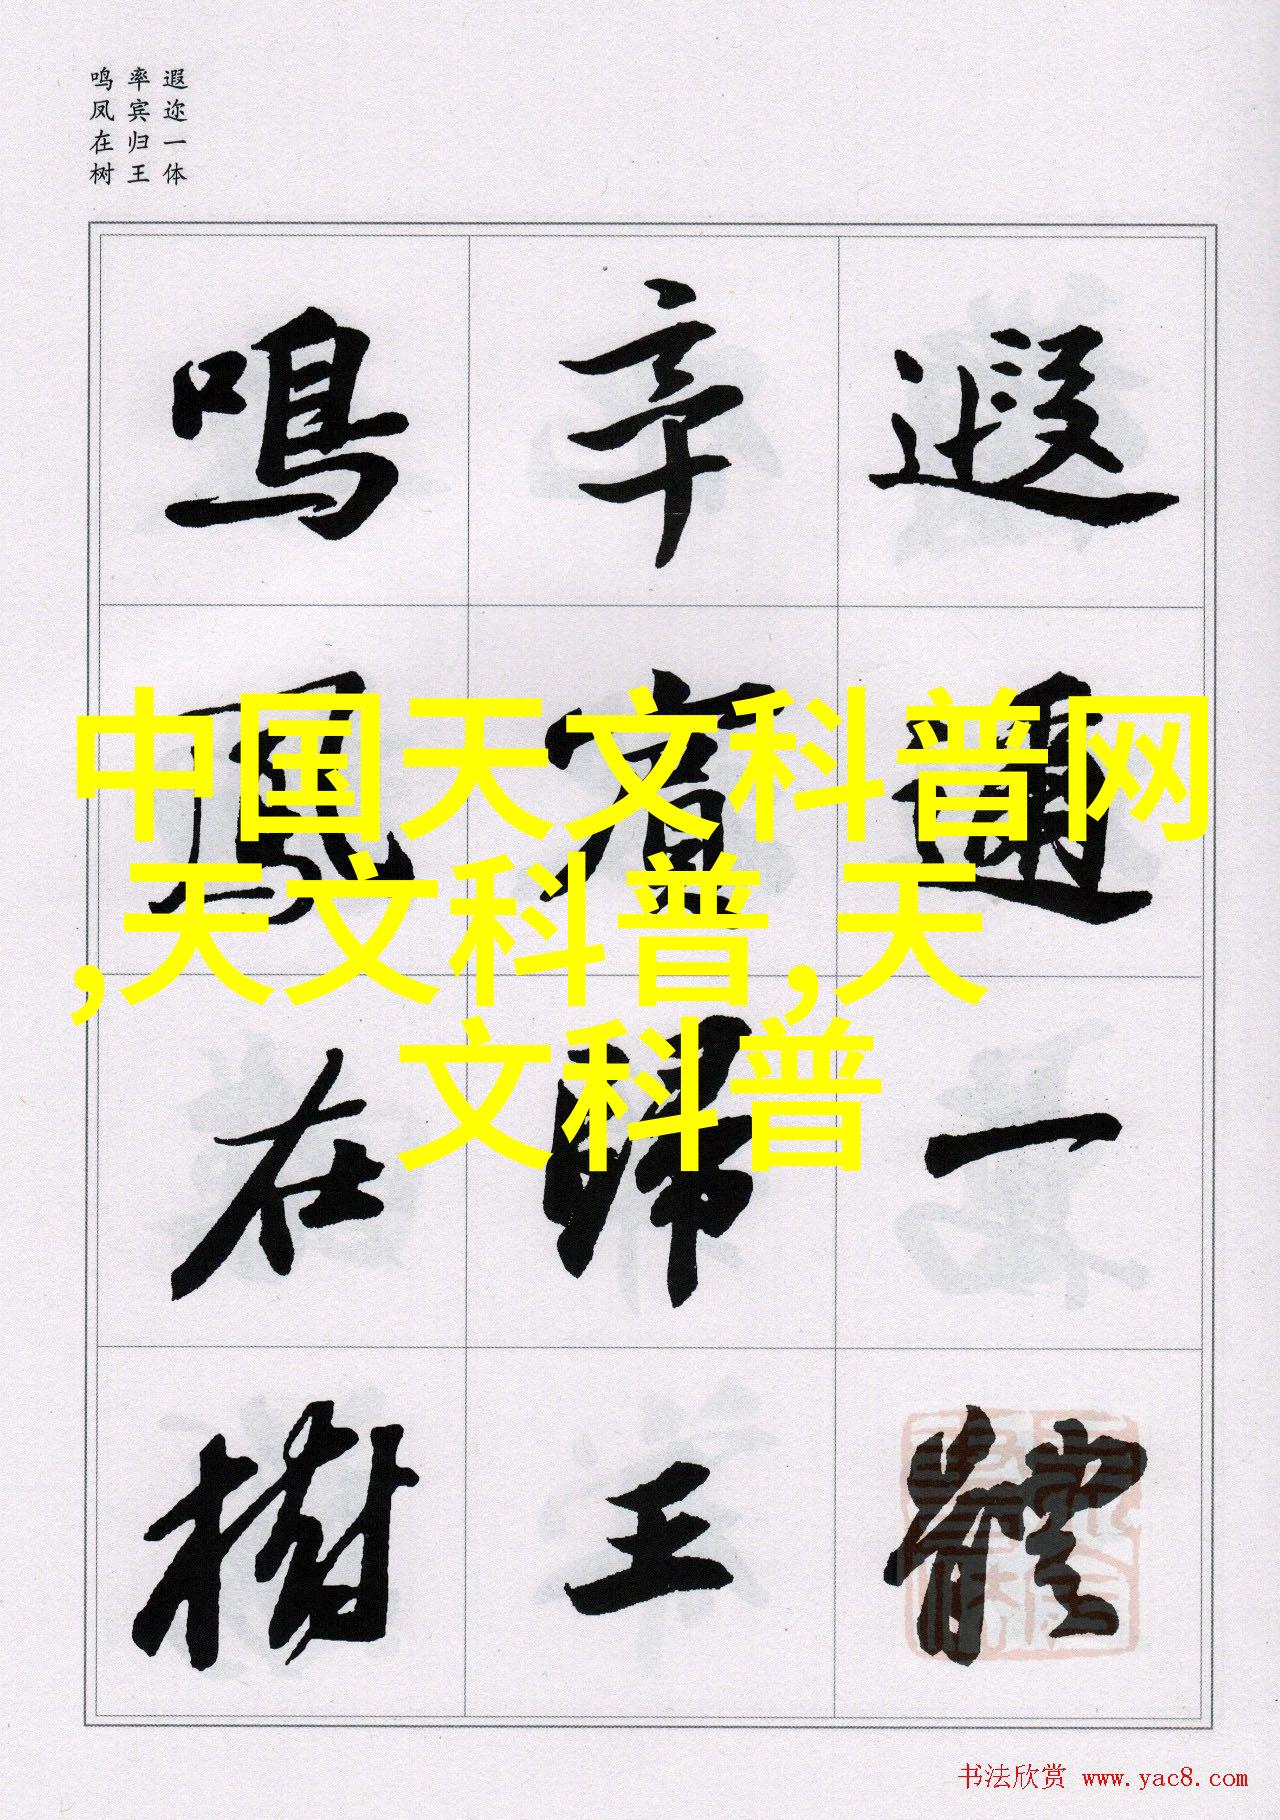 遐迩一体
率宾归王
鸣凤在树
遐邇一體
率賓歸王
鳴鳳在樹
中国天文科普网
,天文科普,天
文科普
书法欣赏 www.yac8.com